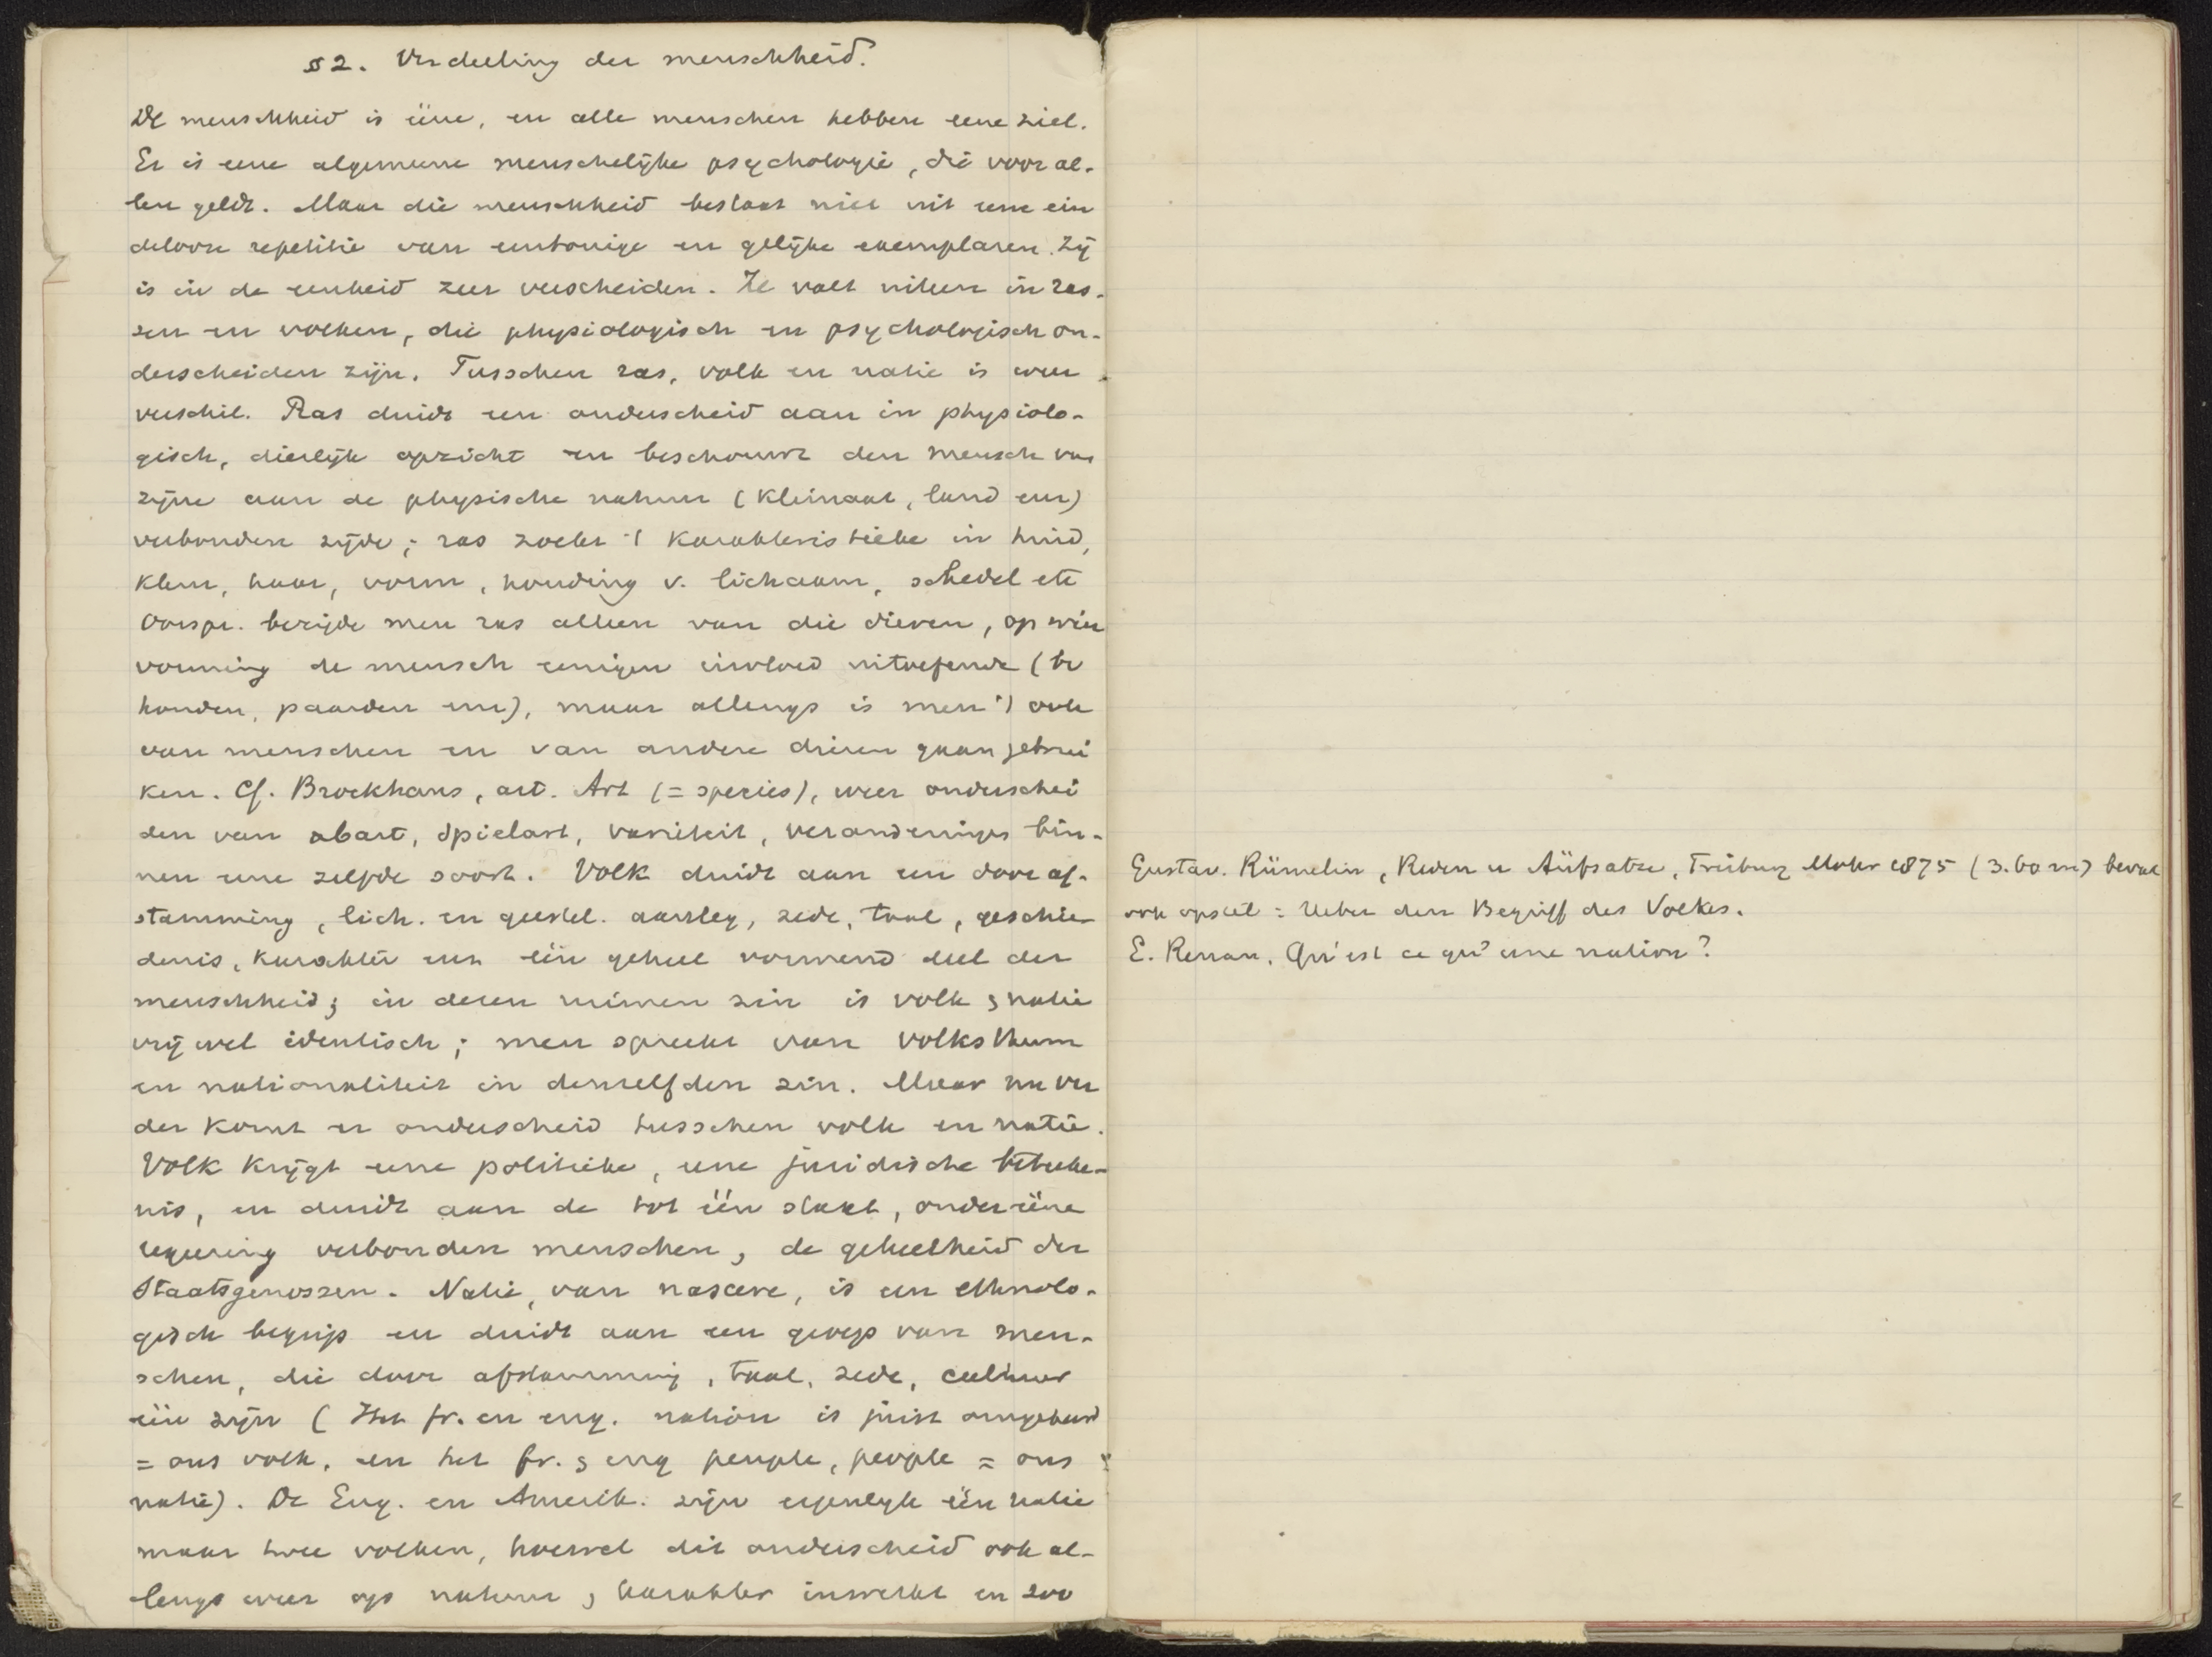 § 2. Verdeeling der menschheid.
De menschheid is ééne, en alle menschen hebben eene ziel.
Er is eene algemeene menschelijke psychologie, die voor al-
len geldt. Maar die menschheid bestaat niet uit eene ein
delooze repetitie van eentonige en gelijke exemplaren. Zij
is in de eenheid zeer verscheiden. Ze valt uiteen in ras-
sen en volken, die physiologisch en psychologisch on-
derscheiden zijn. Tusschen ras, volk en natie is weer
verschil. Ras duidt een onderscheid aan in physiolo-
gisch, dierlijk opzicht en beschouwt den mensch van
zijne aan de physische natuur (klimaat, land enz)
verbonden zijde; ras zoekt 't karakteristieke in huid,
kleur, haar, vorm, houding v. lichaam, schedel etc
Oorspr. bezigde men ras alleen van die dieren, op wier
vorming de mensch eenigen invloed uitoefende (bv
honden, paarden enz), maar allengs is men 't ook
van menschen en van andere dieren gaan gebrui
ken. Cf. Brockhaus, art. Art (= species), weer onderschei
den van abart, Spielart, variëteit, veranderingen bin-
nen eene zelfde soort. Volk duidt aan een door af-
stamming, lich. en geestel. aanleg, zede, taal, geschie
denis, karakter enz één geheel vormend deel der
menschheid; in dezen ruimen zin is volk & natie
vrij wel identisch; men spreekt van Volksthum
en nationaliteit in denzelfden zin. Maar nu ver
der komt er onderscheid tusschen volk en natie.
Volk krijgt eene politieke, eene juridische beteeke-
nis, en duidt aan de tot één staat, onder ééne
regeering verbonden menschen, de geheelheid der
Staatsgenossen. Natie, van nascere, is een ethnolo-
gisch begrip en duidt aan een groep van men-
schen, die door afstamming, taal, zede, cultuur
één zijn (Het fr. en eng. nation is juist omgekeerd
= ons volk, en het fr. & eng peuple, people = ons
natie). De Eng. en Amerik. zijn eigenlijk één natie
maar twee volken, hoewel dit onderscheid ook al-
lengs weer op natuur & karakter inwerkt en zoo
Gustav. Rümelin, Reden u Aüfsatze, Freiburg Mohr 1875 (3.60 m) bevat
ook opstel: Ueber den Begriff des Volkes.
E. Renan, Qu'est ce qu'une nation?